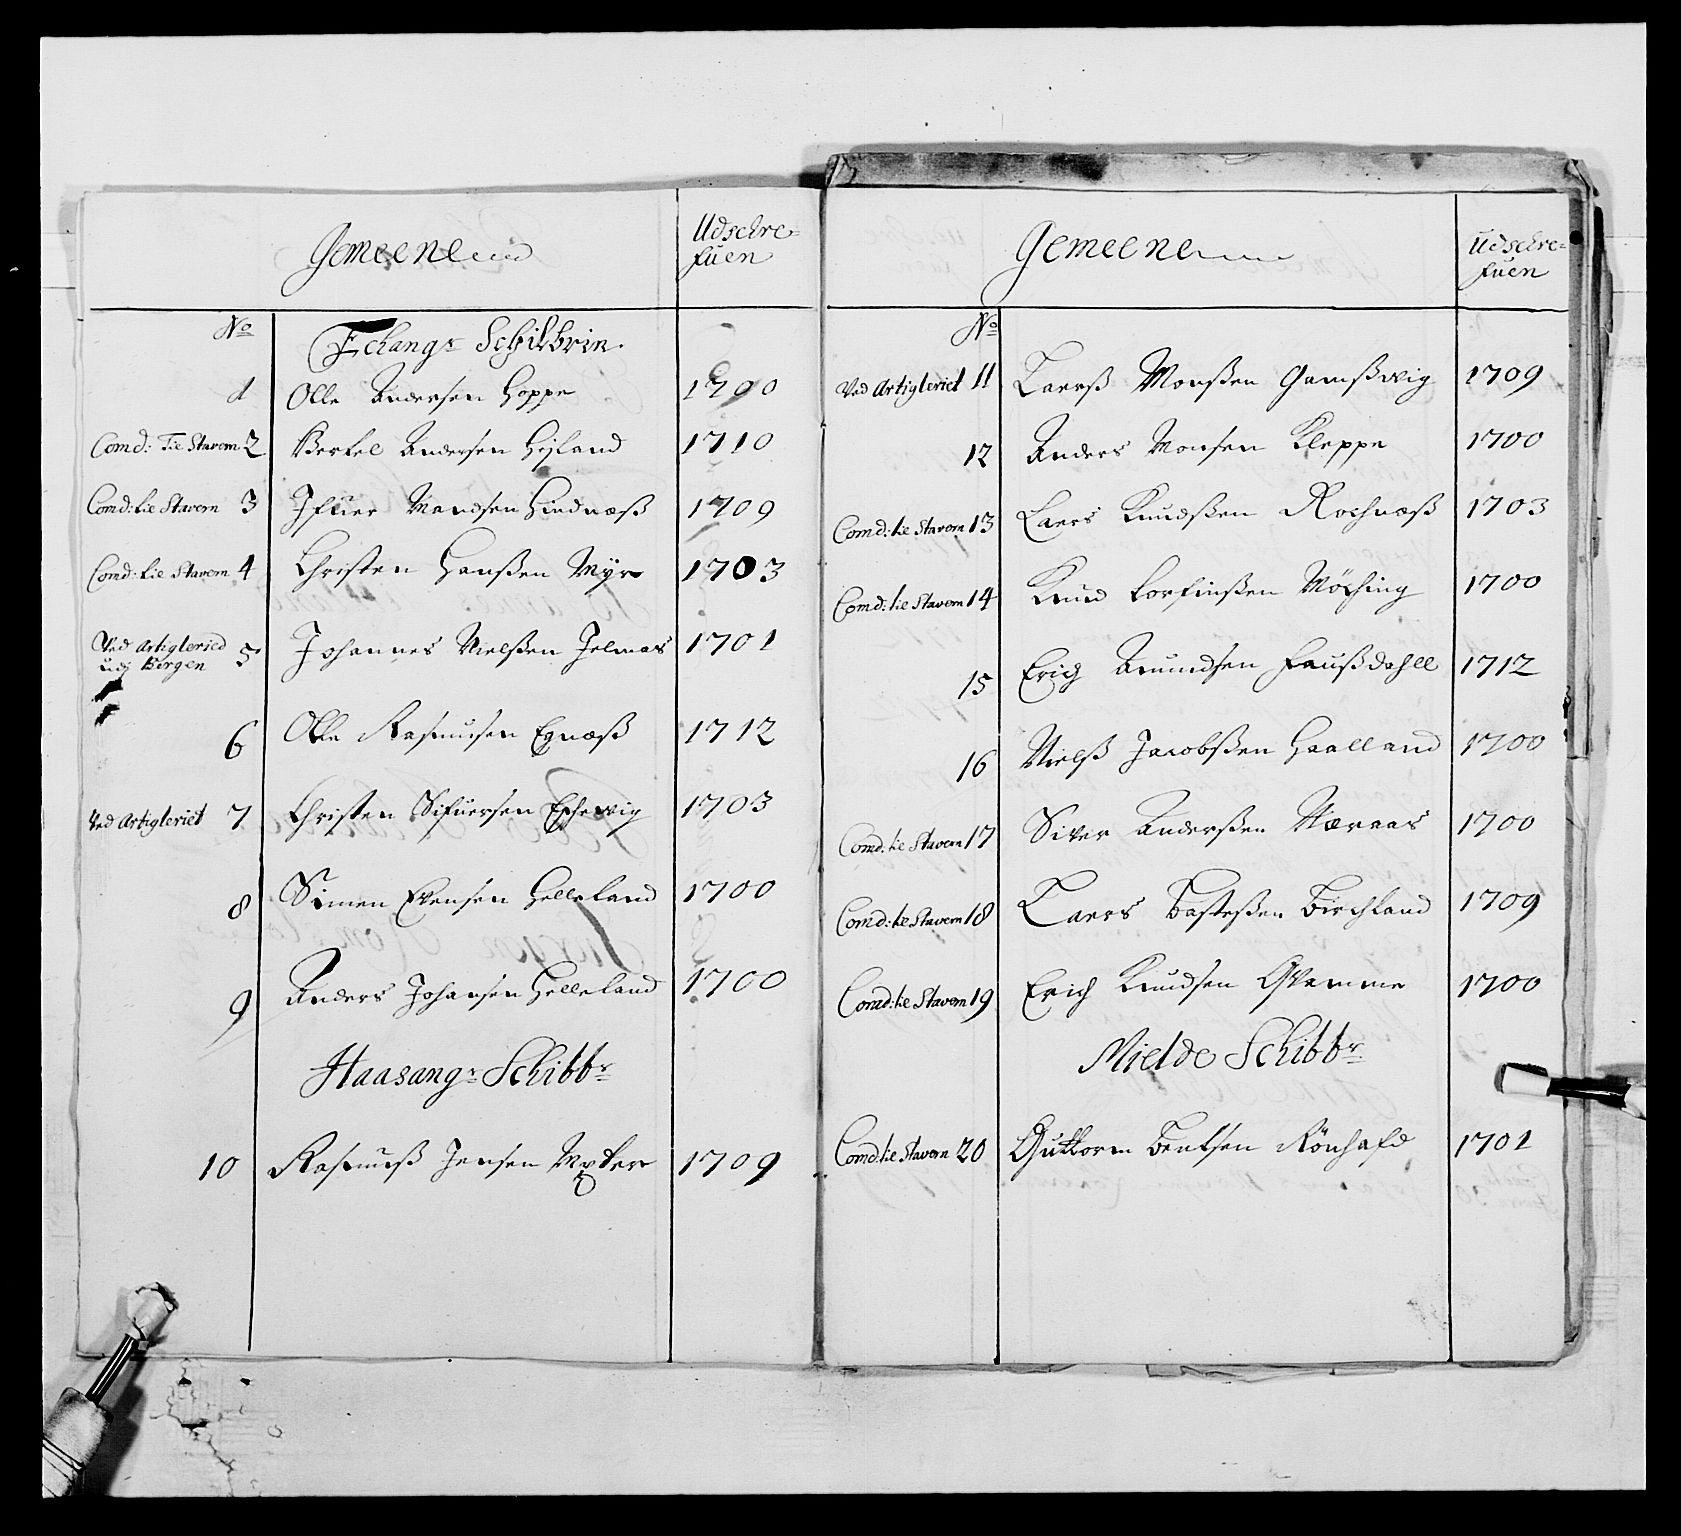 Gemeene
Udschre=
fuen
No
Echangr Schibbrin
1 Olle Andersen Hoppe 1700
Comd: Tie Stavern 2 Bertel Andersen Hÿland 1710
Comd: tie Stavern 3 Ifuer Mandsen Hindnæß 1709
Comd: tie Stavern 4 Christen Hanßen Myr 1703
Ved Artigleried
udj Bergen 5 Johannes Nielßen Jelmas 1701
6 Olle Rasmusen Egnæß 1712
Ved Artigleriet 7 Christen Sifuersen Eschevig 1703
8 Simen Evensen Helleland 1700
9 Anders Johansen Helleland 1700
Haasangr Schibbr
10 Rasmuß Jensen 1709
Gemeene
Udschre=
fuen
No
Ved Artigleriet 11 Laerß Monßen Gamßvig 1709
12 Anders Monsen Kleppe 1700
Comd: tie Stavern 13 Laers Knudßen Rochnæß 1703
Comd: tie Stavern 14 Knud Torfinßen Möching 1700
15 Erig Amundsen Faußdahll 1712
16 Nielß Jacobßen Haalland 1700
Comd: tie Stavern 17 Siver Anderßen Næraas 1700
Comd: tie Stavern 18 Laers Basteßen Birchland 1709
Comd: tie Stavern 19 Erich Knudsen Qvamme 1700
Mielde Schibbr
Comd tie Stavern 20 Guttorm Bentsen Rönhafd 1701